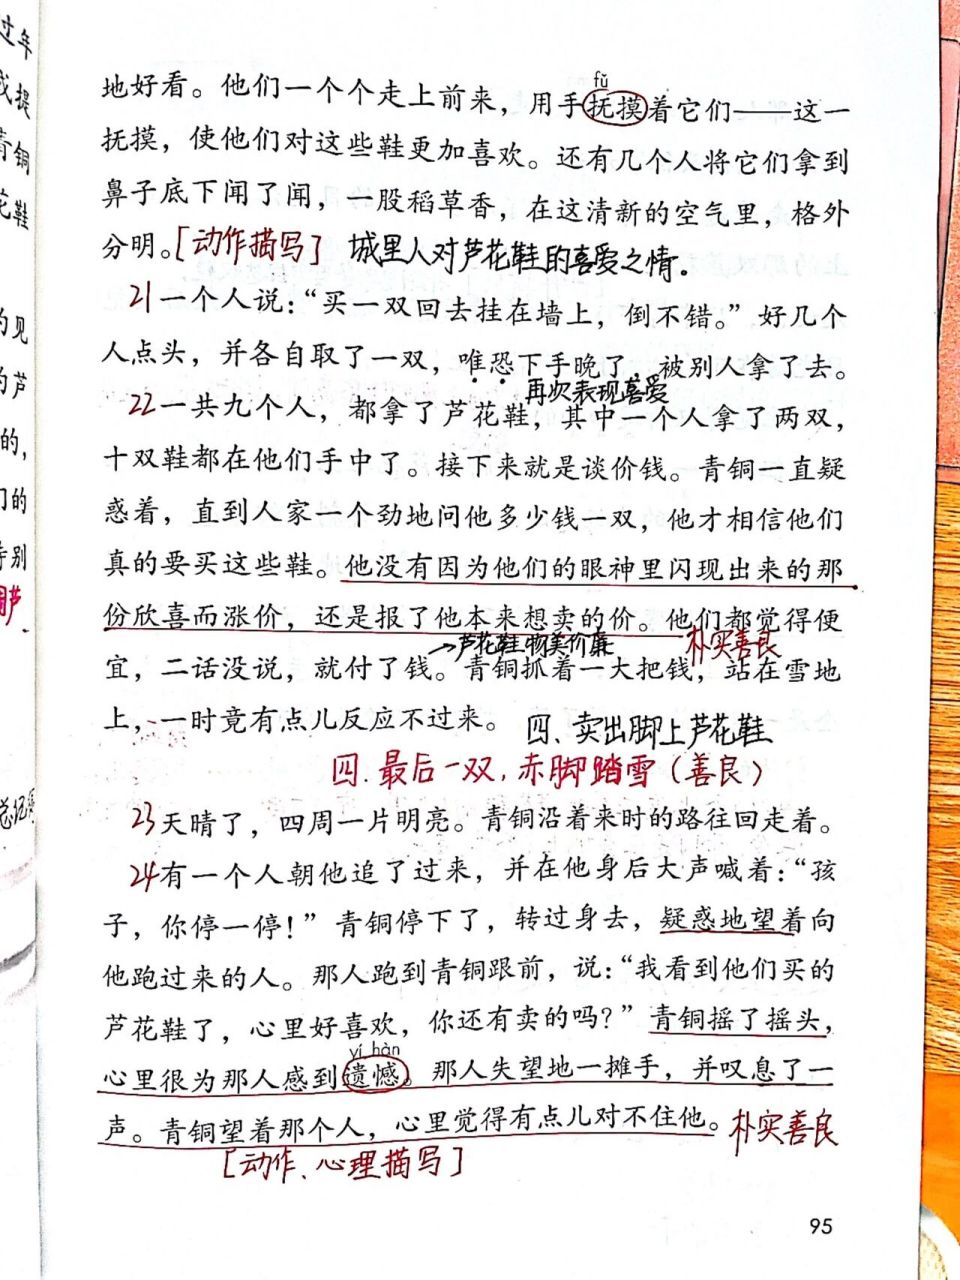 过年
或提
青铜
花鞋
的见
的芦
的，
们的
特别
fǔ
地好看。他们一个个走上前来，用手抚摸着它们——这一
抚摸，使他们对这些鞋更加喜欢。还有几个人将它们拿到
鼻子底下闻了闻，一股稻草香，在这清新的空气里，格外
分明。[动作描写] 城里人对芦花鞋的喜爱之情。
21一个人说：“买一双回去挂在墙上，倒不错。”好几个
人点头，并各自取了一双，唯恐下手晚了，被别人拿了去。
再次表现喜爱
22一共九个人，都拿了芦花鞋，其中一个人拿了两双，
十双鞋都在他们手中了。接下来就是谈价钱。青铜一直疑
惑着，直到人家一个劲地问他多少钱一双，他才相信他们
真的要买这些鞋。他没有因为他们的眼神里闪现出来的那
份欣喜而涨价，还是报了他本来想卖的价。他们都觉得便
→芦花鞋物美价廉 朴实善良
宜，二话没说，就付了钱。青铜抓着一大把钱，站在雪地
上，一时竟有点儿反应不过来。 四、卖出脚上芦花鞋
四.最后一双，赤脚踏雪（善良）
23天晴了，四周一片明亮。青铜沿着来时的路往回走着。
24有一个人朝他追了过来，并在他身后大声喊着：“孩
子，你停一停！”青铜停下了，转过身去，疑惑地望着向
他跑过来的人。那人跑到青铜跟前，说：“我看到他们买的
芦花鞋了，心里好喜欢，你还有卖的吗？”青铜摇了摇头，
yí hàn
心里很为那人感到遗憾。那人失望地一摊手，并叹息了一
声。青铜望着那个人，心里觉得有点儿对不住他。朴实善良
[动作、心理描写]
95